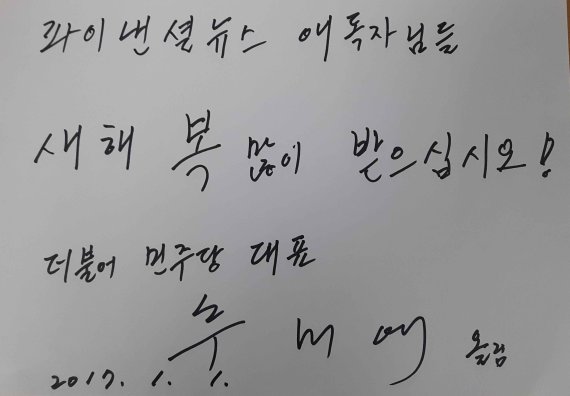 파이낸셜뉴스 애독자님들
새해 복 많이 받으십시오!
더불어 민주당 대표
추미애 올림
2017. 1. 1.